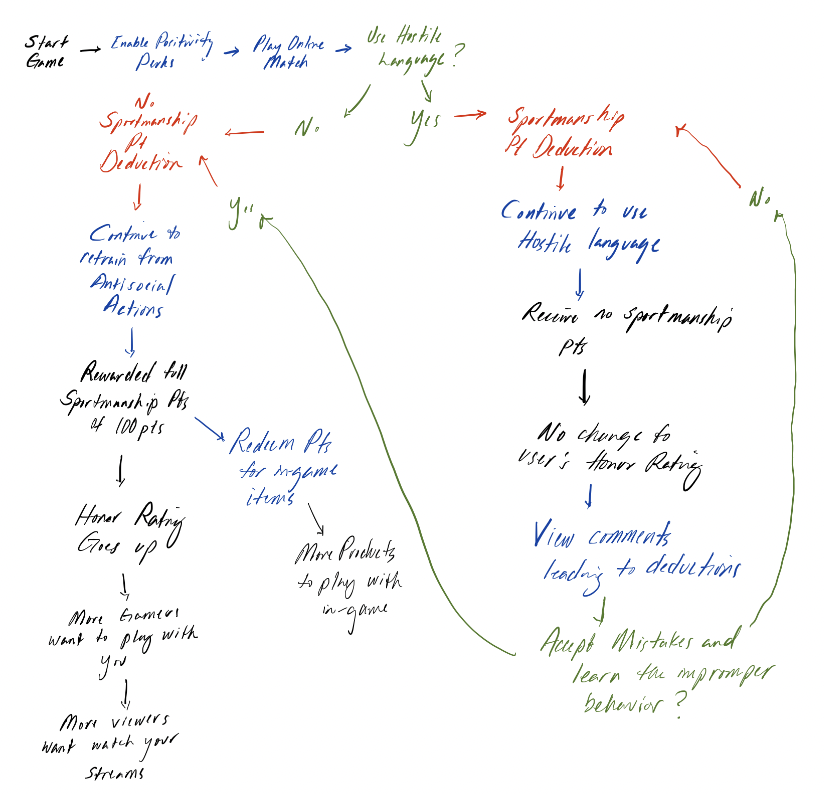 Start
Game
Enable Positivity
Perks
Play Online
Match
Use Hostile
Language?
No
Yes
No
Sportmanship
Pt
Deduction
Sportmanship
Pt Deduction
Yes
No
Continue to
retrain from
Antisocial
Actions
Continue to use
Hostile language
Rewarded full
Sportmanship Pts
of 100pts
Receive no sportmanship
pts
Redeem Pts
for in-game
items
No change to
user's Honor Rating
Honor Rating
Goes up
More Products
to play with
in-game
View comments
leading to deductions
More Gamers
want to play with
you
Accept Mistakes and
learn the impromper
behavior?
More viewers
want watch your
streams